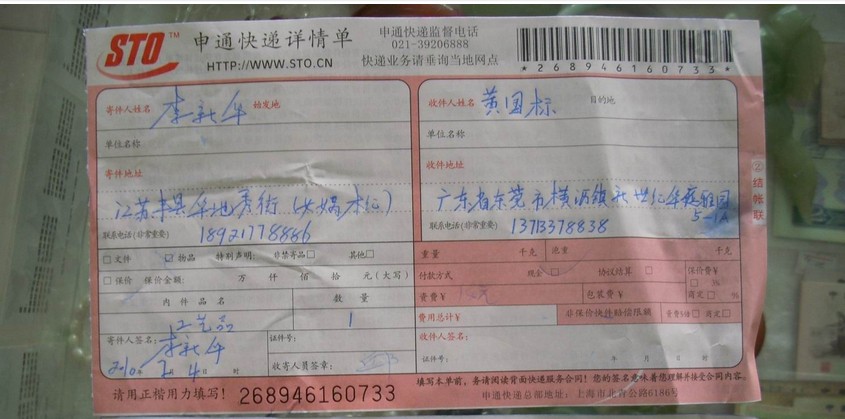 STO™ 申通快递详情单
HTTP://WWW.STO.CN
申通快递监督电话
021-39206888
快递业务请垂询当地网点
*268946160733*
寄件人姓名 李新华 始发地
单位名称
寄件地址
江苏丰县华地秀街
联系电话(非常重要) 18921778886
收件人姓名 黄国标 目的地
单位名称
收件地址
广东省东莞市横沥镇新世纪华庭雅园
5-1A
联系电话(非常重要) 13713378838
②结帐联
□文件 ☑物品 特别声明: 非禁寄品□ 其他□
□保价 保价金额: 万 仟 佰 拾 元(大写)
内件品名 数量
工艺品 1
寄件人签名: 李新华
2010年 2月 4日 时
证件号:
收寄人员签章:
重量 千克 泡重 千克
付款方式 现金□ 协议结算□ 保价费¥
□ %
资费¥ 包装费¥ 商定□ %
费用总计¥ 非保价快件赔偿限额 资费5倍□ 商定□
收件人签名:
证件号: 年 月 日 时
请用正楷用力填写! 268946160733
填写本单前,务请阅读背面快递服务合同!您的签名意味着您理解并接受合同内容。
申通快递总部地址:上海市北青公路6186号